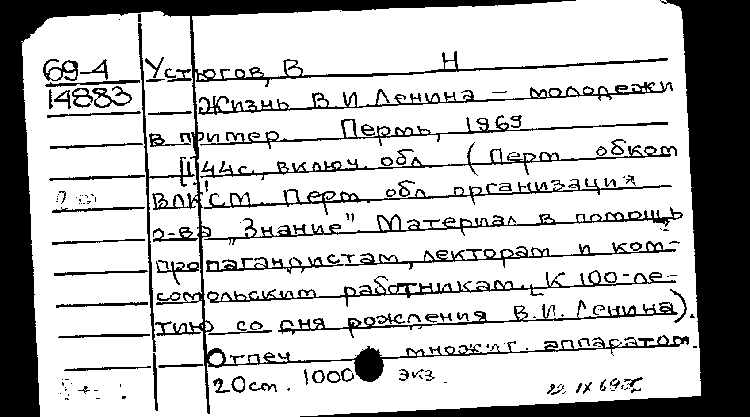 69-4 Устюгов, В Н
14883 Жизнь В И Ленина - молодежи
в пример. Пермь, 1969
[1] 44с., включ. обл (Перм обком
ВЛКСМ. Перм. обл организация
о-ва „Знание". Материал в помощь
пропагандистам, лекторам и ком-
сомольским работникам. К 100-ле-
тию со дня рождения В.И. Ленина).
Отпеч множит. аппаратом
20см. 1000 экз.
22 IX 69